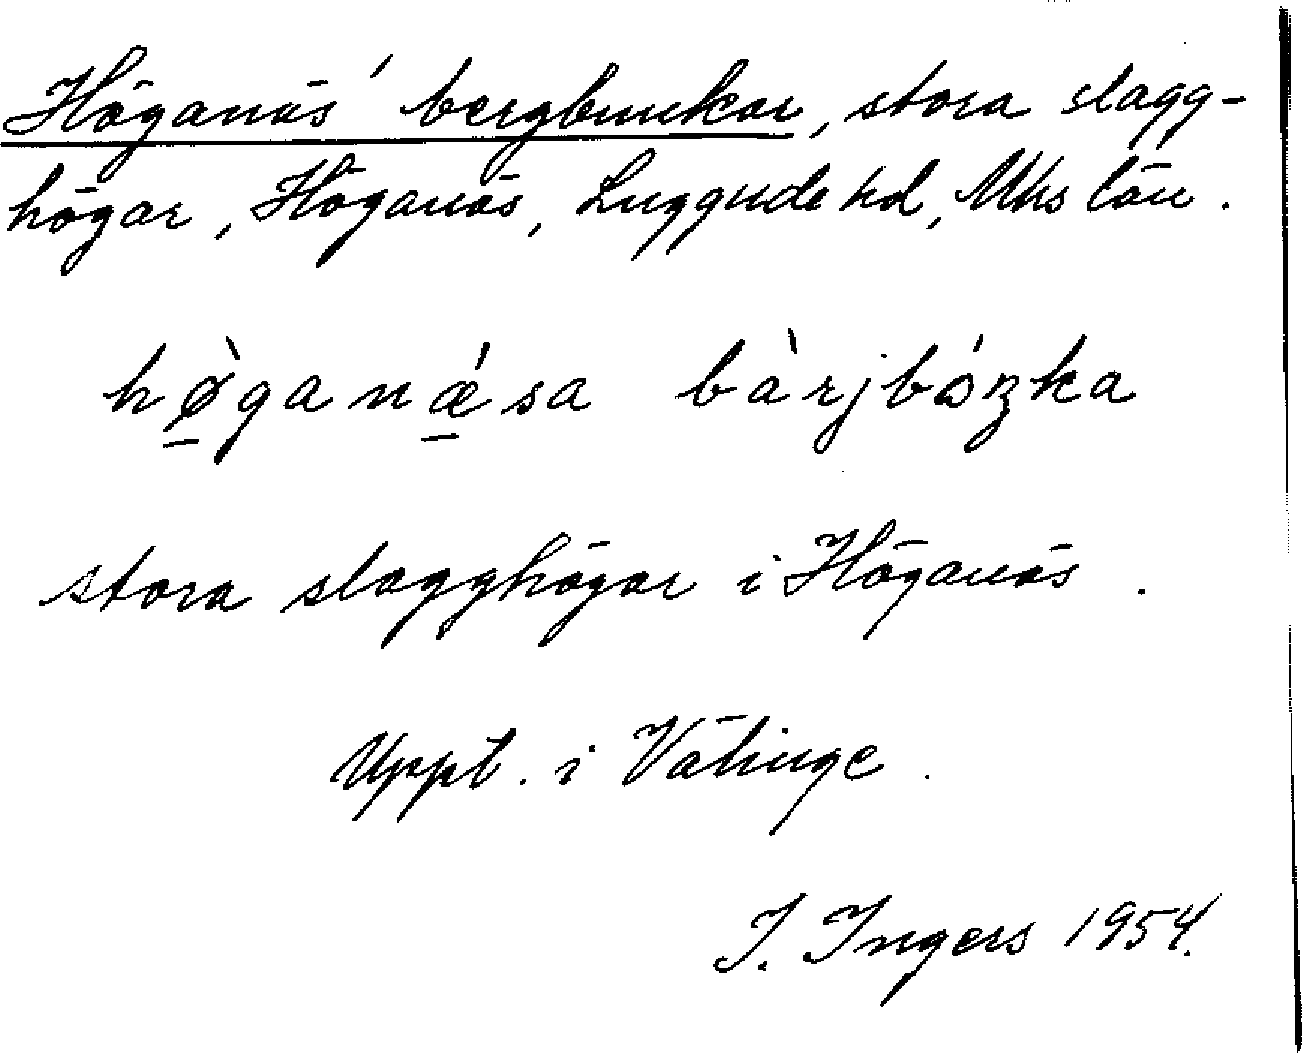 Höganäs' bergbunkar, stora slagg-
högar, Höganäs, Luggude hd, Mhs län.
hø̀ganǽsa bàrjbóŋka
stora slagghögar i Höganäs.
Uppt. i Välinge.
I. Ingers 1954.